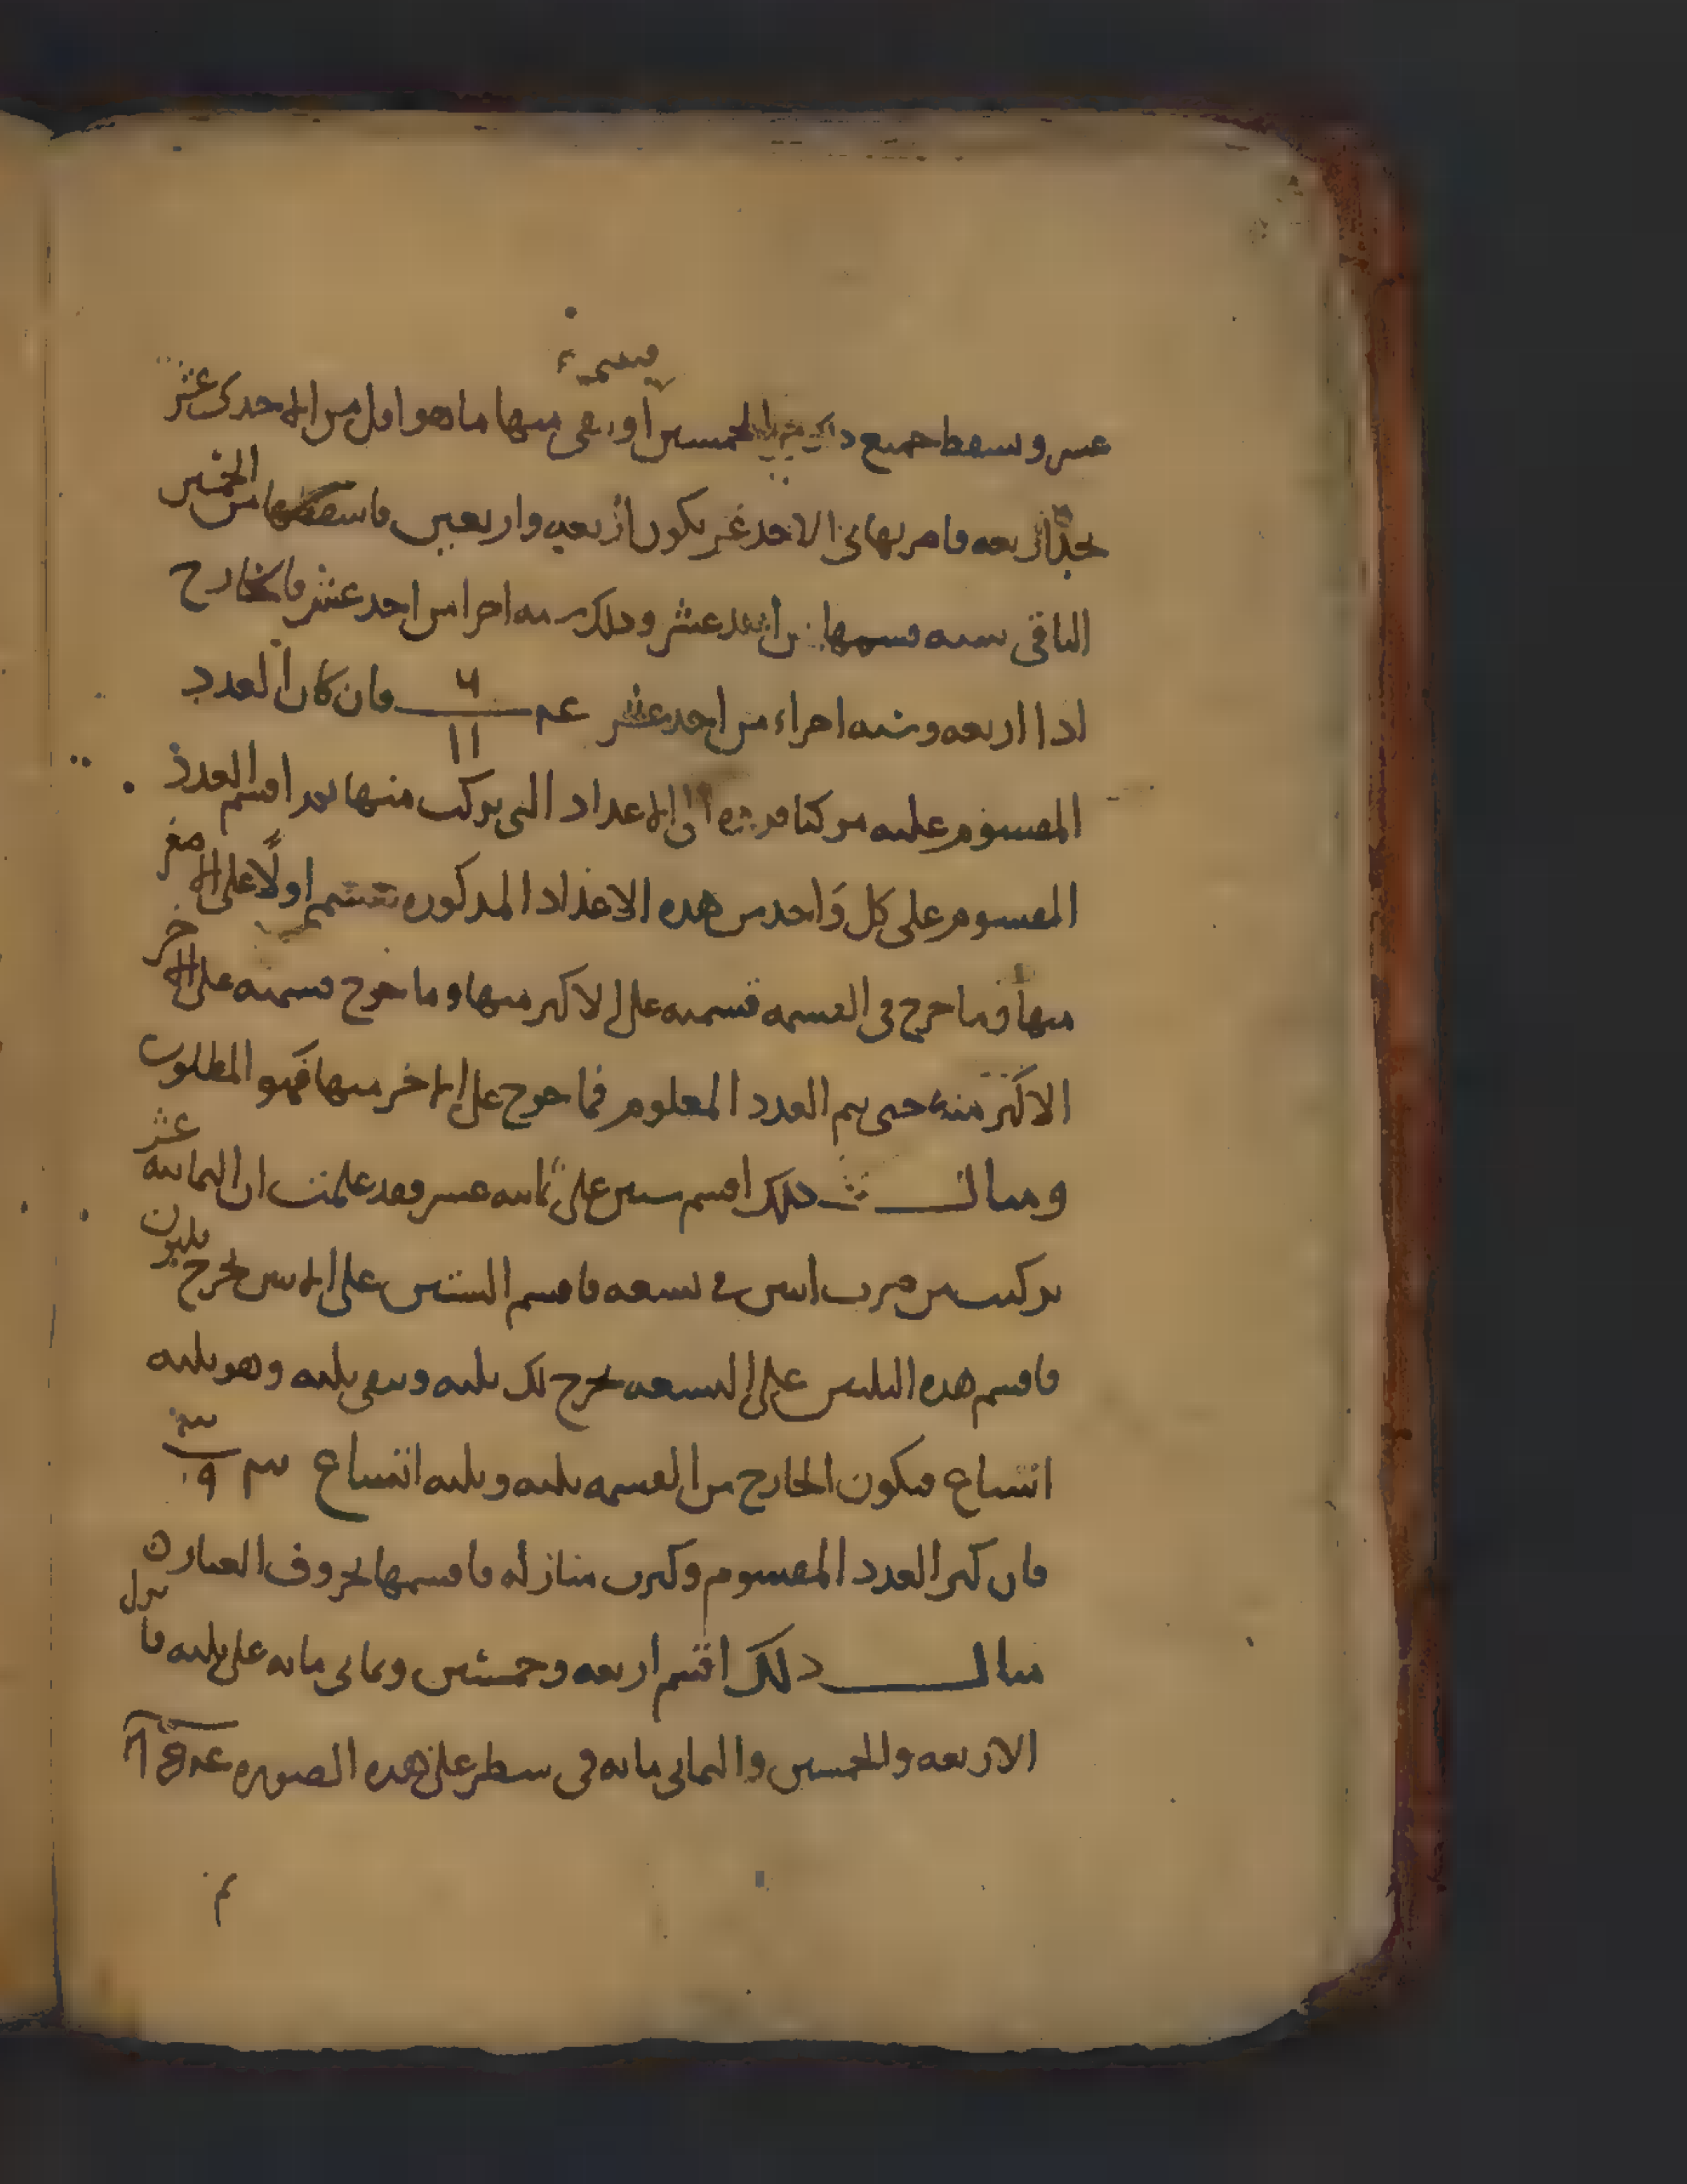 عشر وسقط جميع ذلك من الخمسين او بقى منها ما هو اقل من الاحد عشر
تجد اربعه فاضربها فى الاحد عشر يكون اربعه واربعين فاسقطها من الخمسين
الباقى سته فسمها من احد عشر وذلك سته اجزا من احد عشر فالخارج
اذا اربعه وسته اجزاء من احد عشر فان كان العدد
المقسوم عليه مركبا الى الاعداد التى تركب منها بعد اقسم العدد
المقسوم على كل واحد من هذه الاعداد المذكوره تقسم اولا على الاصغر
منها وما خرج فى القسمه قسمته على الاكبر منها وما خرج قسمته على الاخر
الاكبر منه حتى يتم العدد المعلوم فما خرج على الاخر منها فهو المطلوب
ومثال ذلك اقسم ستين على ثمانيه عشر فقد علمت ان الثمانيه عشر
تركبت من ضرب اثنين فى تسعه فاقسم الستين على الاثنين يخرج ثلثون
فاقسم هذه الثلثين على التسعه يخرج لك ثلثه وبقى ثلثه وهو ثلثه
اتساع فيكون الخارج من القسمه ثلثه وثلثه اتساع
فان كثر العدد المقسوم وكثرت منازله فاقسمها بحروف الغباره
مثال ذلك اقسم اربعه وخمسين وثمانى مائه على ثلثه فانزل
الاربعه والخمسين والثمانى مائه فى سطر على هذه الصوره